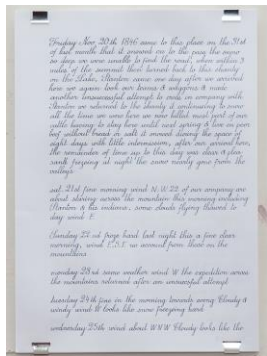 Friday Nov. 20th 1846 came to this place on the 31st
of last month that it snowed one to the pass the snow
so deep we were unable to find the road, when within 3
miles of the summit then turned back to this shanty
on the Lake, Stanton came one day after we arrived
here we again took our teams & waggons & made
another unsuccessful attempt to cross in company with
Stanton we returned to the shanty it continueing to snow
all the time we were here we now have killed most part of our
cattle having to stay here untill next spring & live on poor
beef without bread or salt it snowed during the space of
eight days with little intermission, after our arrival here,
the remainder of time up to this day was clear & pleasant
freezing at night the snow nearly gone from the
valleys
sat. 21st fine morning wind N.W. 22 of our company are
about starting across the mountain this morning including
Stanton & his indians, some clouds flying thawed to
day wind E
Sunday 22nd froze hard last night this a fine clear
morning, wind E.S.E no account from those on the
mountains
monday 23rd same weather wind W the expedition across
the mountains returned after an unsuccessful attempt
tuesday 24th fine in the morning towards eveng Cloudy &
windy wind W looks like snow freezeing hard
wednesday 25th wind about WNW Cloudy looks like the